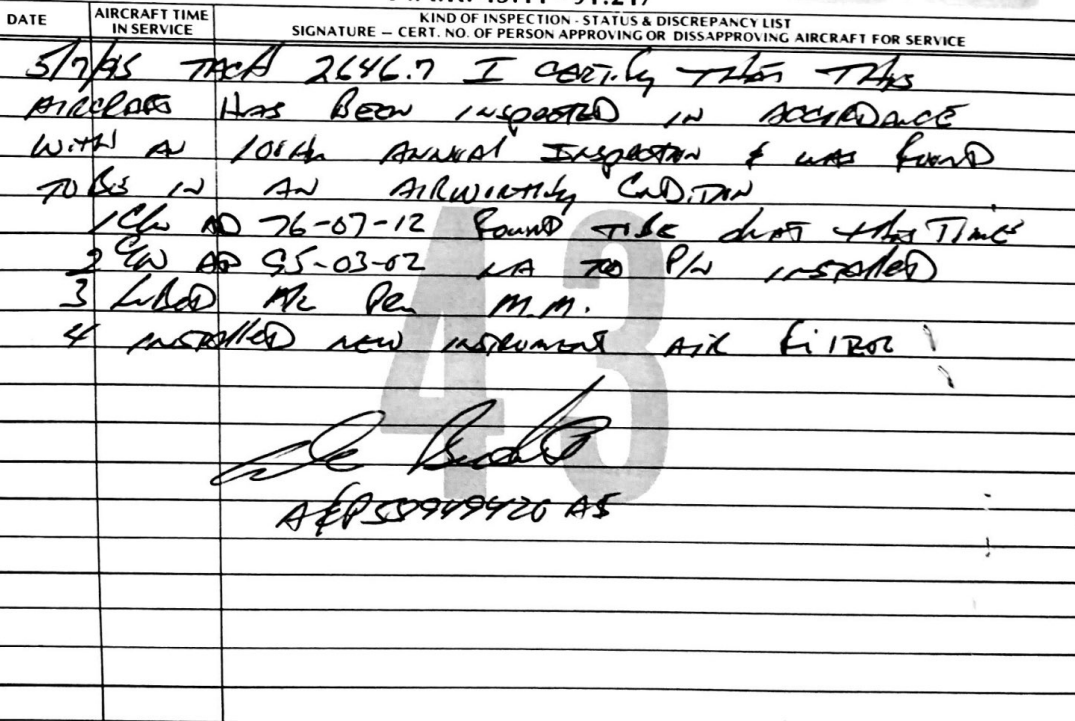 DATE
AIRCRAFT TIME IN SERVICE
KIND OF INSPECTION - STATUS & DISCREPANCY LIST
SIGNATURE — CERT. NO. OF PERSON APPROVING OR DISSAPPROVING AIRCRAFT FOR SERVICE
5/7/95 TACH 2646.7 I CERTIFY THAT THIS
AIRCRAFT HAS BEEN INSPECTED IN ACCORDANCE
WITH AN 100Hr ANNUAL INSPECTION & WAS FOUND
TO BE IN AN AIRWORTHY CONDITION
1 C/W AD 76-07-12 FOUND TO BE THIS TIME
2 C/W AD 95-03-02 NA TO P/N INSTALLED
3 LUBED A/C PER M.M.
4 INSTALLED NEW INSTRUMENT AIR FILTER
A&P 559499420 
43